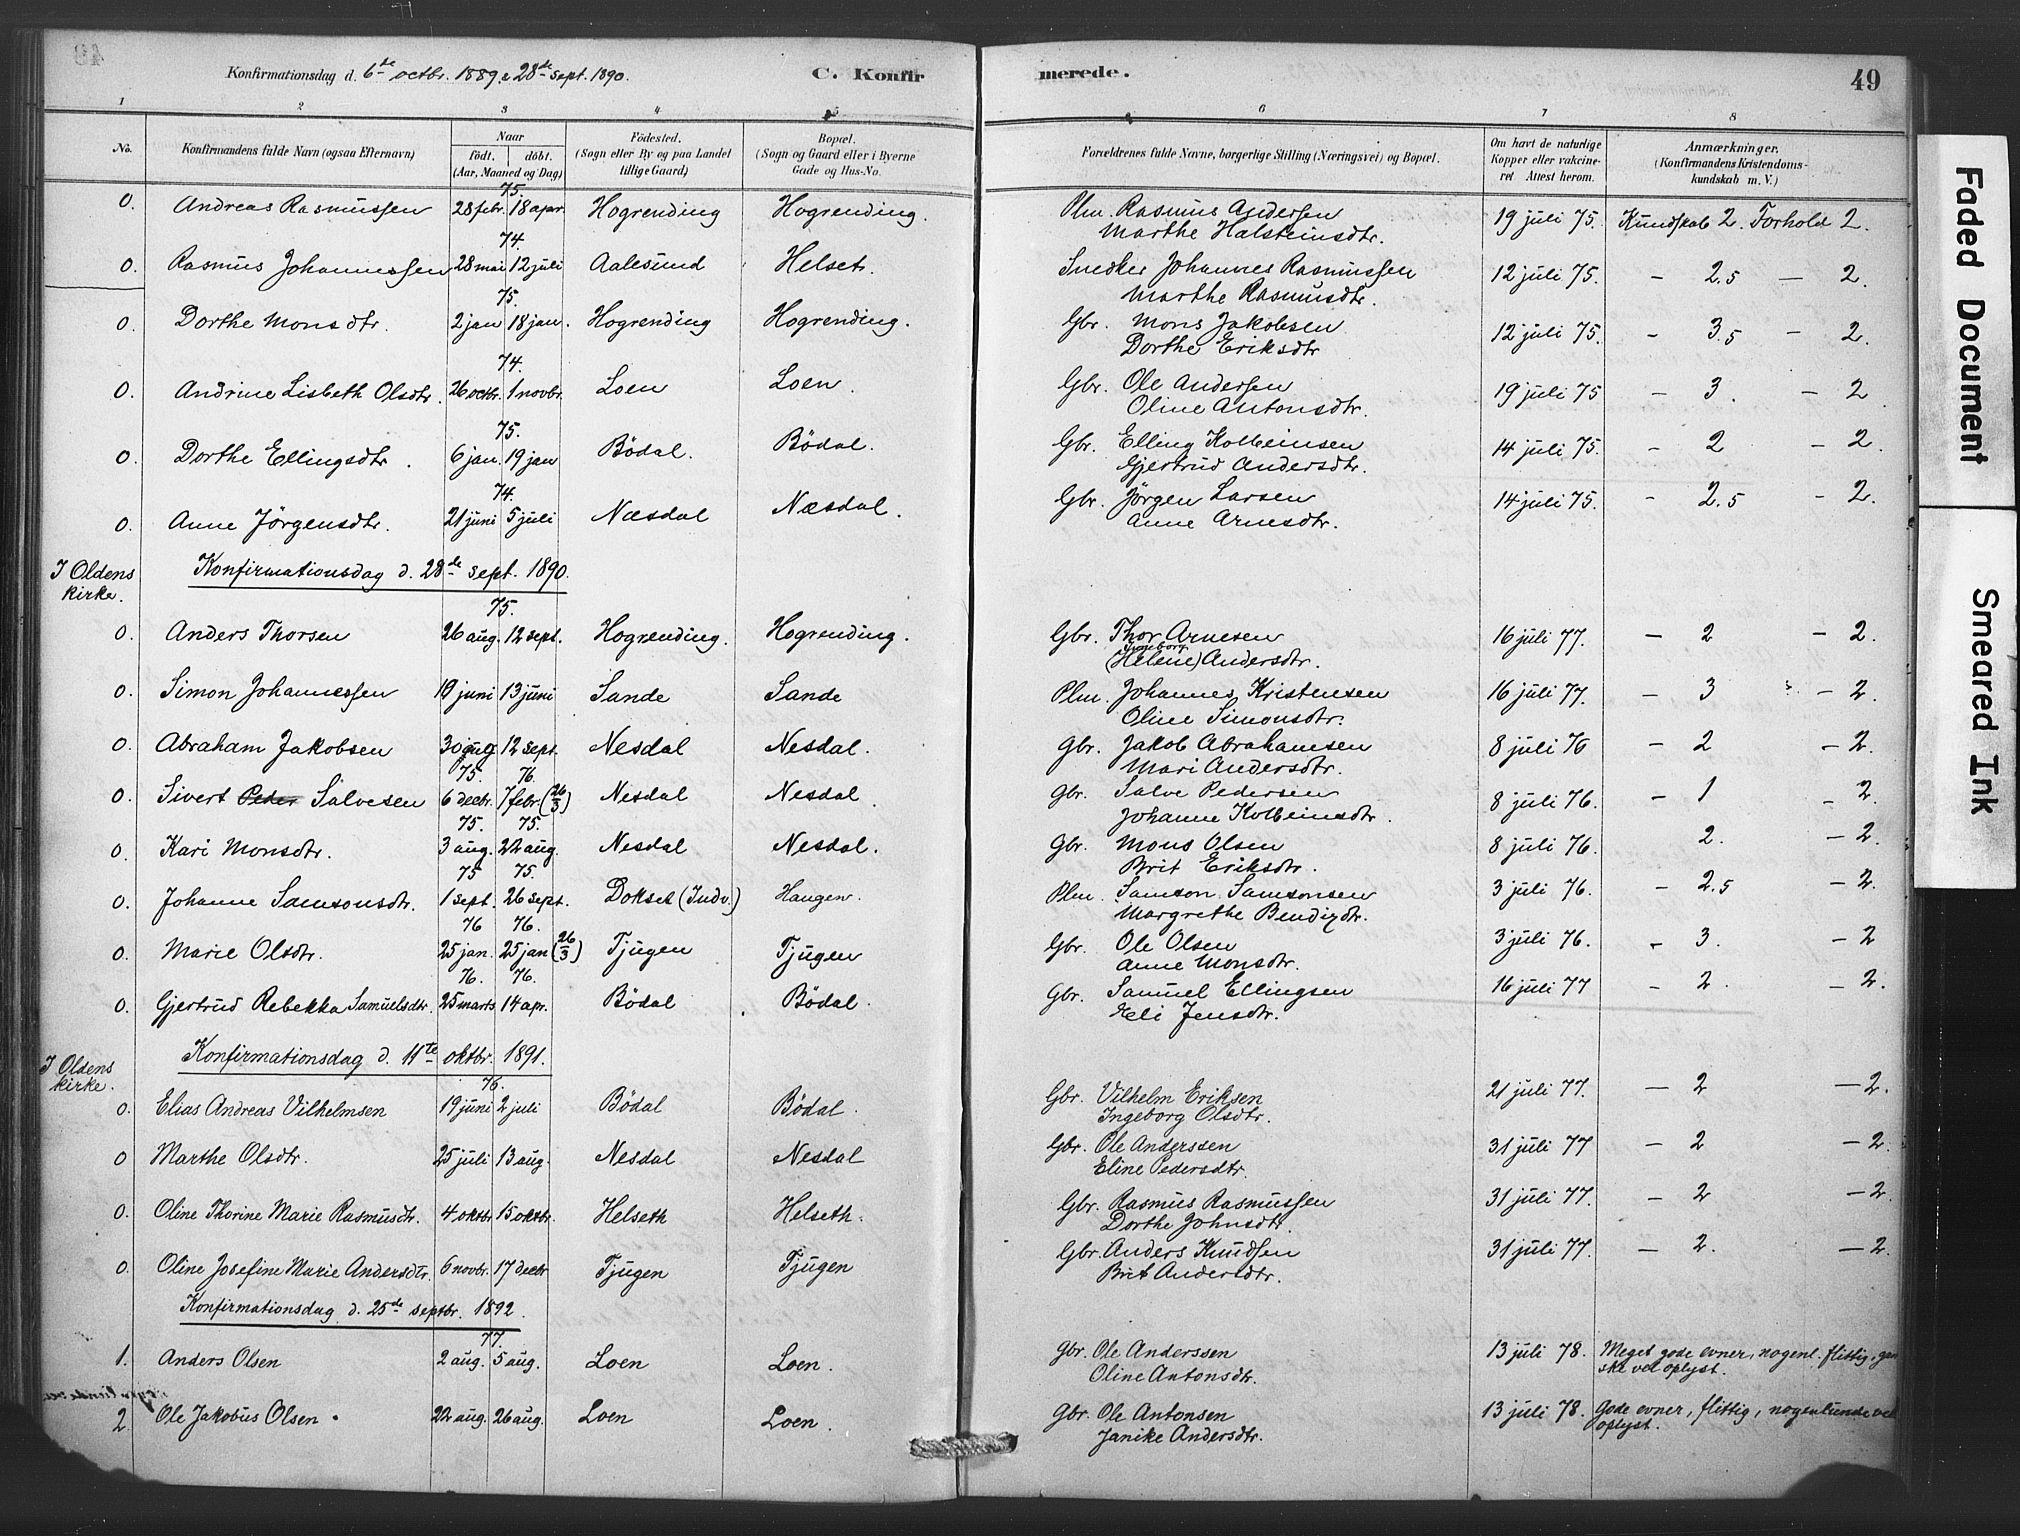 Konfirmationsdag d. 6te octbr. 1889 & 28de sept. 1890. C. Konfirmerede. 49
1 2 3 4 5 6 7 8
No. Konfirmandens fulde Navn (ogsaa Efternavn) Naar født. døbt. (Aar, Maaned og Dag) Födested. (Sogn eller By og paa Landet tillige Gaard) Bopæl. (Sogn og Gaard eller i Byerne Gade og Hus-No. Forældrenes fulde Navne, borgerlige Stilling (Næringsvei) og Bopæl. Om havt de naturlige Kopper eller vakcineret Attest herom. Anmærkninger. (Konfirmandens Kristendomskundskab m. V.)
75.
0. Andreas Rasmussen 28 febr. 18 apr. Hogrending Hogrending. Plm. Rasmus Andersen 19 juli 75. Kundskab 2. Forhold 2.
Marthe Halsteinsdtr.
74.
0. Rasmus Johannessen 28 mai 12 juli Aalesund Helset. Snedker Johannes Rasmussen 12 juli 75. — 2.5 — 2.
Marthe Rasmusdtr.
75.
0. Dorthe Monsdtr. 2 jan 18 jan. Hogrending Hogrending. Gbr. Mons Jakobsen 12 juli 75. — 3.5 — 2.
Dorthe Eriksdtr
74.
0. Andrine Lisbeth Olsdtr. 26 octbr. 1 novbr. Loen Loen. Gbr. Ole Andersen 19 juli 75 — 3. — 2
Oline Antonsdtr.
75.
0. Dorthe Ellingsdtr. 6 jan. 19 jan Bödal. Bödal. Gbr. Elling Kolbeinsen 14 juli 75. — 2 — 2.
Gjertrud Andersdtr.
74.
0. Anne Jörgensdtr. 21 juni 5 juli Næsdal Næsdal. Gbr. Jörgen Larsen 14 juli 75. — 2.5 — 2.
Anne Arnesdtr.
I Oldens kirke. Konfirmationsdag d. 28de sept. 1890.
75.
0. Anders Thorsen 26 aug. 12 sept. Hogrending. Hogrending. Gbr. Thor Arnesen 16 juli 77. — 2 — 2.
Ingeborg
(Helene) Andersdtr.
0. Simon Johannessen 19 juni 13 juni Sande Sande Plm. Johannes Kristensen 16 juli 77. — 3 — 2.
Oline Simonsdtr.
0. Abraham Jakobsen 30 aug 12 sept. Nesdal Nesdal. Gbr. Jakob Abrahamsen 8 juli 76 — 2 — 2.
Mari Andersdtr.
75. 76.
0. Sivert Peder Salvesen 6 decbr. 7 febr. (26/3) Nesdal Nesdal. Gbr. Salve Pedersen 8 juli 76. — 1 — 2.
Johanne Kolbeinsdtr.
75. 75.
0. Kari Monsdtr. 3 aug. 22 aug. Nesdal Nesdal. Gbr. Mons Olsen 8 juli 76. 2. — 2.
Brit Eriksdtr.
75 75.
0. Johanne Samsonsdtr. 1 sept. 26 sept. Dokset (Indv.) Haugen. Plm. Samson Samsonsen 3 juli 76. — 2.5 — 2.
Margrethe Bendixdtr.
76 76.
0. Marie Olsdtr. 25 jan. 25 jan (26/3) Tjugen Tjugen Gbr. Ole Olsen 3 juli 76. — 3. — 2
Anne Monsdtr.
76. 76.
0. Gjertrud Rebekka Samuelsdtr. 25 marts 14 apr. Bödal Bödal. Gbr. Samuel Ellingsen 16 juli 77 — 2. — 2.
Eli Jensdtr.
I Oldens kirke. Konfirmationsdag d. 11te oktbr. 1891.
76.
0. Elias Andreas Vilhelmsen 19 juni 2 juli Bödal Bödal. Gbr. Vilhelm Eriksen 21 juli 77. — 2 — 2.
Ingeborg Olsdtr.
0 Marthe Olsdtr. 25 juli 13 aug. Nesdal Nesdal Gbr. Ole Anderssen 31 juli 77 — 2 — 2.
Eline Pedersdtr.
0. Oline Thorine Marie Rasmusdtr. 4 oktbr. 15 oktbr. Helseth Helseth. Gbr. Rasmus Rasmussen 31 juli 77. — 2 — 2.
Dorthe Johnsdtr.
0. Oline Josefine Marie Andersdtr. 6 novbr. 17 decbr Tjugen Tjugen Gbr. Anders Knudsen 31 juli 77. — 2. — 2.
Brit Andersdtr.
Konfirmationsdag d. 25de septbr. 1892.
77.
1. Anders Olsen 2 aug. 5 aug. Loen Loen. Gbr. Ole Anderssen 13 juli 78. Meget gode evner, nogenl. flittig, gan
Oline Antonsdtr. ske vel oplyst.
2. Ole Jakobus Olsen. 22 aug. 26 aug. Loen Loen. Gbr. Ole Antonsen 13 juli 78. Gode evner, flittig, nogenlunde vel
Janike Andersdtr. oplyst.
Faded Document
Smeared Ink